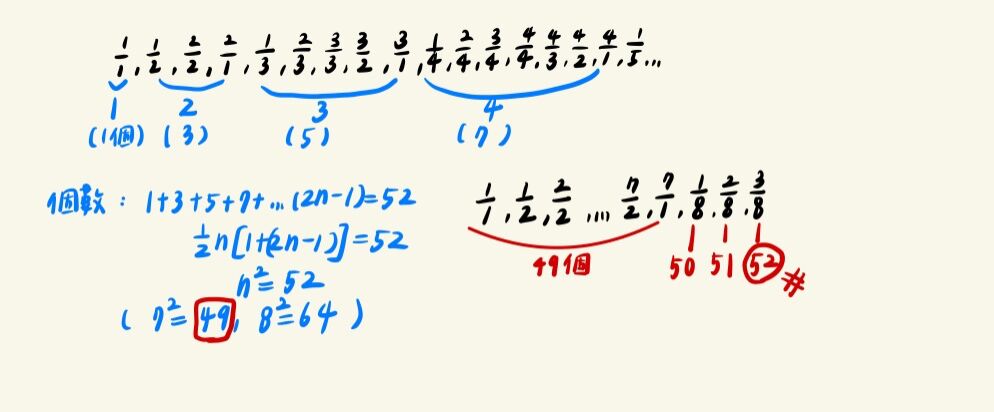 1/1, 1/2, 2/2, 2/1, 1/3, 2/3, 3/3, 3/2, 3/1, 1/4, 2/4, 3/4, 4/4, 4/3, 4/2, 4/1, 1/5...
1 2 3 4
(1個) (3) (5) (7)
個數: 1+3+5+7+...(2n-1)=52
1/2 n[1+(2n-1)]=52
n²=52
( 7²=49, 8²=64 )
1/1, 1/2, 2/2, ...., 7/2, 7/1, 1/8, 2/8, 3/8
49個 50 51 52 #